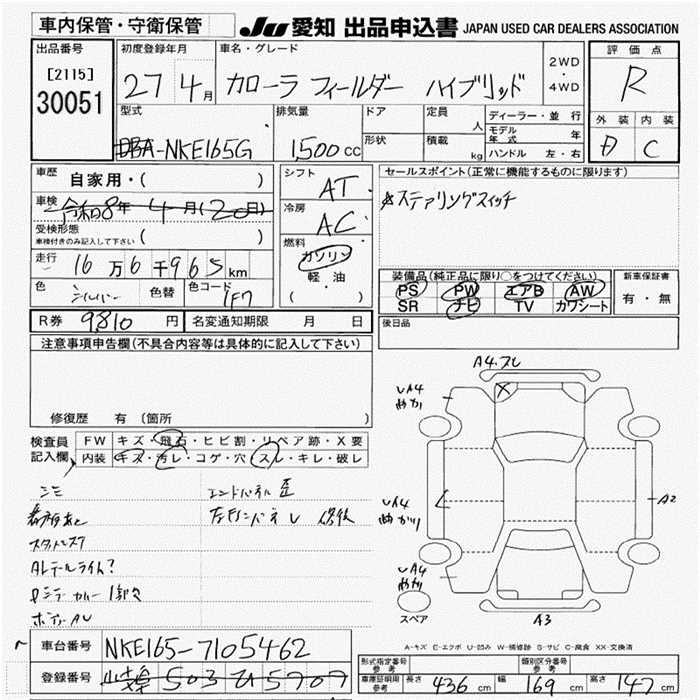 車内保管・守衛保管
JU 愛知 出品申込書 JAPAN USED CAR DEALERS ASSOCIATION
出品番号
[2115]
30051
初度登録年月
27 4月
車名・グレード
カローラ フィールダー ハイブリッド
2WD
・
4WD
評価点
R
外装 内装
D C
型式
DBA-NKE165G
排気量
1,500cc
ドア
形状
定員
人
積載
kg
ディーラー・並行
モデル年式 年
ハンドル 左・右
車歴
自家用・( )
車検
令和8年 4月(20日)
受検形態
車検付きのみ記入して下さい ( )
走行
16万6千965km
色
シルバー
色替
色コード
1F7
シフト
AT
冷房
AC
燃料
ガソリン
軽・油
( ・ )
セールスポイント(正常に機能するものに限ります)
ステアリングスイッチ
装備品(純正品に限り○をつけてください)
PS PW エアB AW
SR ナビ TV カワシート
新車保証書
有・無
後日品
R券 9,810円
名変通知期限 月 日
注意事項申告欄(不具合内容等は具体的に記入して下さい)
修復歴 有 (箇所
検査員
記入欄
FW キズ・飛石・ヒビ割・リペア跡・X要
内装 キズ・汚レ・コゲ・穴・スレ・キレ・破レ
シミ
エンドパネル歪
ALテールライト?
ボデーAU
A4.スレ
UA4
UA4
UA4
A2
A3
スペア
A-キズ E-エクボ U-凹み W-補修跡 S-サビ C-腐食 XX-交換済
車台番号
NKE165-7105462
登録番号
503 ひ 5909
型式指定番号
参考
類別区分番号
参考
車庫証明用
参考
長さ 436cm
幅 169cm
高さ 147cm